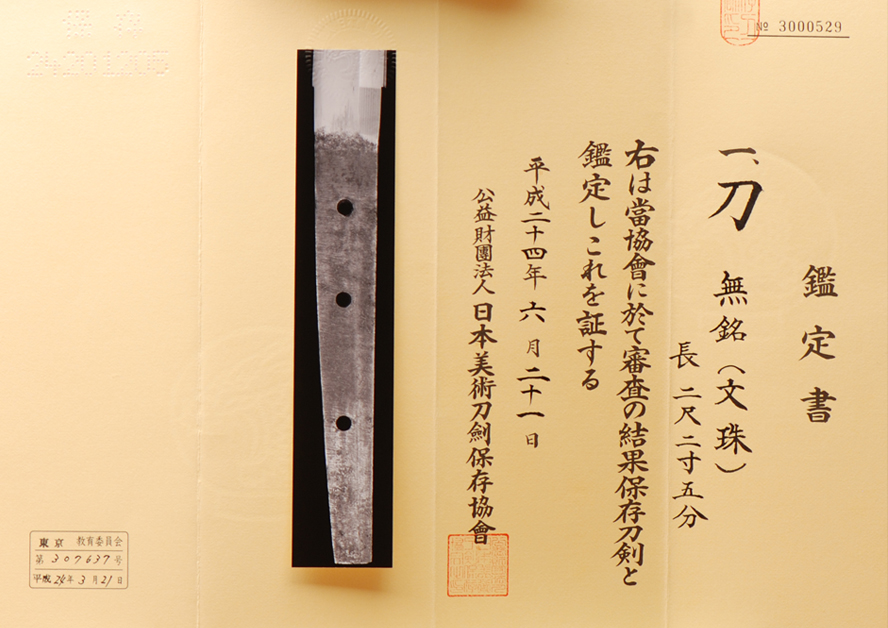 № 3000529
鑑定書
一、刀 無銘(文珠)
長 二尺二寸五分
右は當協會に於て審査の結果保存刀剣と
鑑定しこれを証する
平成二十四年 六月二十一日
公益財團法人 日本美術刀劍保存協會
東京 教育委員会
第 307637 号
平成 24年 3月 21日